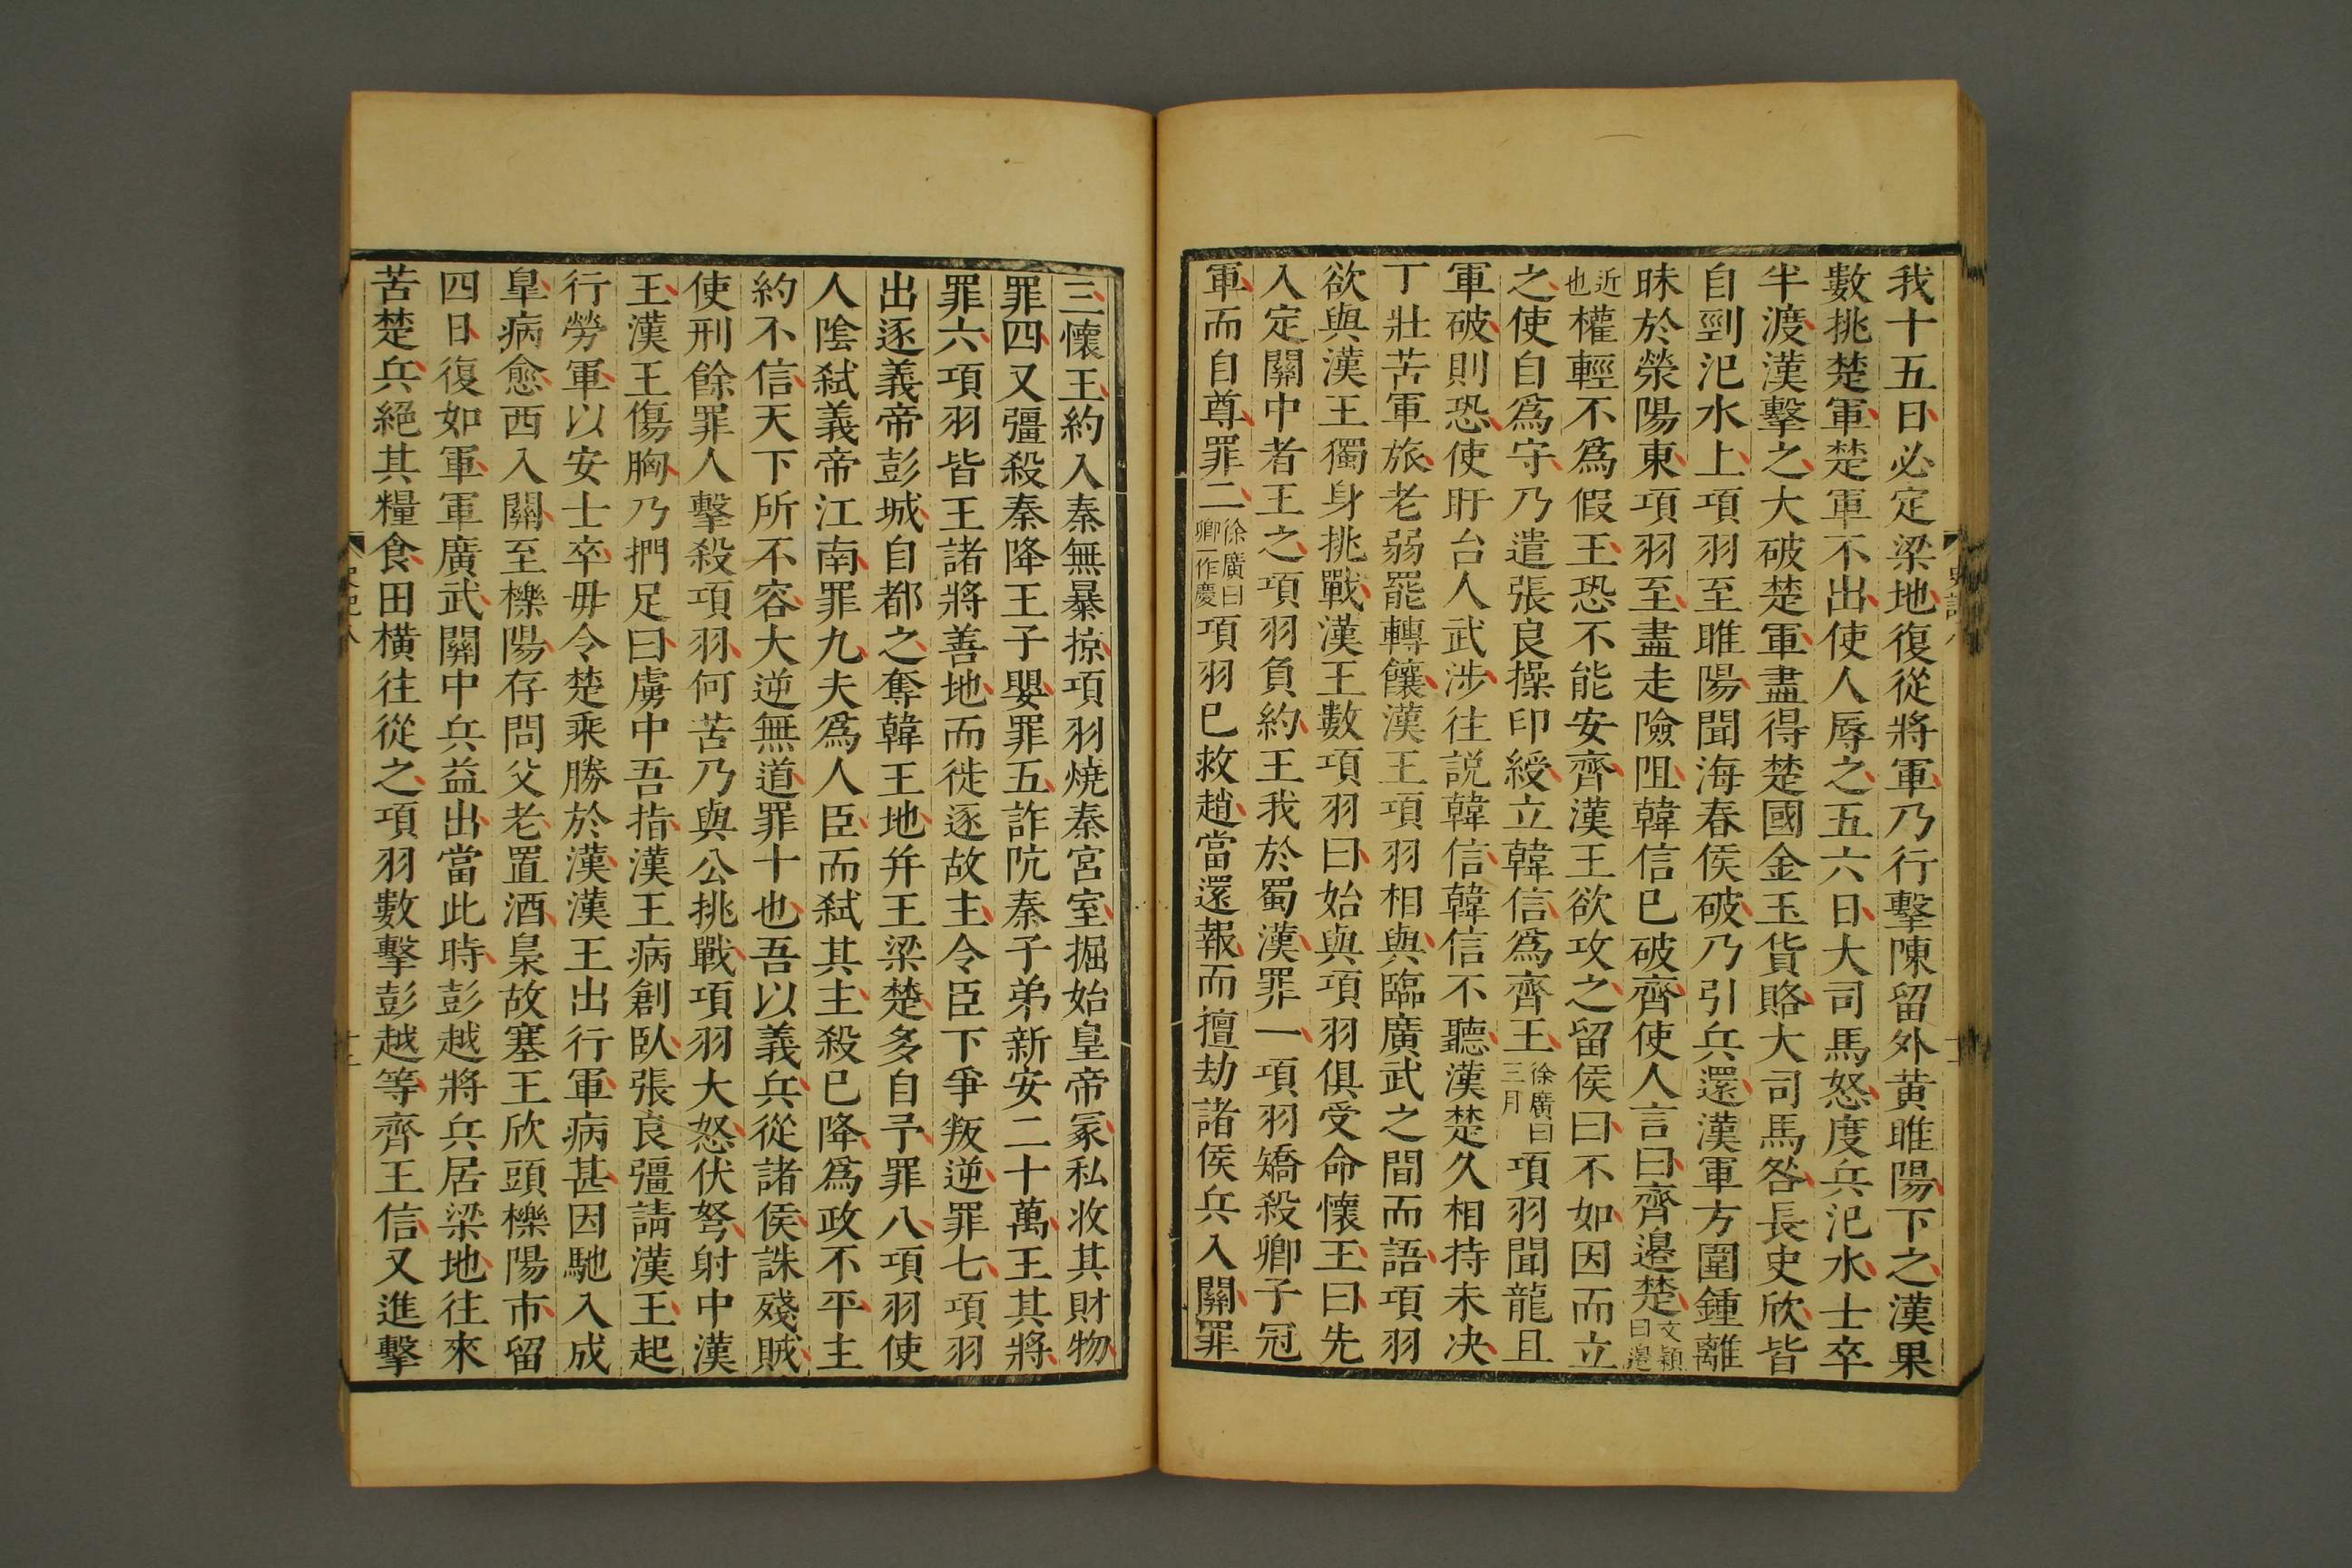 我十五日必定梁地復從將軍乃行擊陳留外黃睢陽下之漢果
數挑楚軍楚軍不出使人辱之五六日大司馬怒度兵汜水士卒
半渡漢擊之大破楚軍盡得楚國金玉貨賂大司馬咎長史欣皆
自剄汜水上項羽至睢陽聞海春侯破乃引兵還漢軍方圍鍾離
昧於滎陽東項羽至盡走險阻韓信已破齊使人言曰齊邊楚文穎曰邊
近也權輕不爲假王恐不能安齊漢王欲攻之留侯曰不如因而立
之使自爲守乃遣張良操印綬立韓信爲齊王徐廣曰三月項羽聞龍且
軍破則恐使盱台人武涉往説韓信韓信不聽漢楚久相持未决
丁壯苦軍旅老弱罷轉饟漢王項羽相與臨廣武之間而語項羽
欲與漢王獨身挑戰漢王數項羽曰始與項羽俱受命懷王曰先
入定關中者王之項羽負約王我於蜀漢罪一項羽矯殺卿子冠
軍而自尊罪二徐廣曰卿一作慶項羽已救趙當還報而擅劫諸侯兵入關罪
三懷王約入秦無暴掠項羽燒秦宮室掘始皇帝冢私收其財物
罪四又彊殺秦降王子嬰罪五詐阬秦子弟新安二十萬王其將
罪六項羽皆王諸將善地而徙逐故主令臣下爭叛逆罪七項羽
出逐義帝彭城自都之奪韓王地并王梁楚多自予罪八項羽使
人陰弑義帝江南罪九夫爲人臣而弑其主殺已降爲政不平主
約不信天下所不容大逆無道罪十也吾以義兵從諸侯誅殘賊
使刑餘罪人擊殺項羽何苦乃與公挑戰項羽大怒伏弩射中漢
王漢王傷胸乃捫足曰虜中吾指漢王病創臥張良彊請漢王起
行勞軍以安士卒毋令楚乘勝於漢漢王出行軍病甚因馳入成
臯病愈西入關至櫟陽存問父老置酒梟故塞王欣頭櫟陽市留
四日復如軍軍廣武關中兵益出當此時彭越將兵居梁地往來
苦楚兵絕其糧食田橫往從之項羽數擊彭越等齊王信又進擊